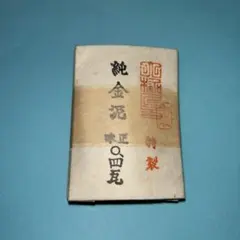 純金泥
正味
〇、四瓦
特製